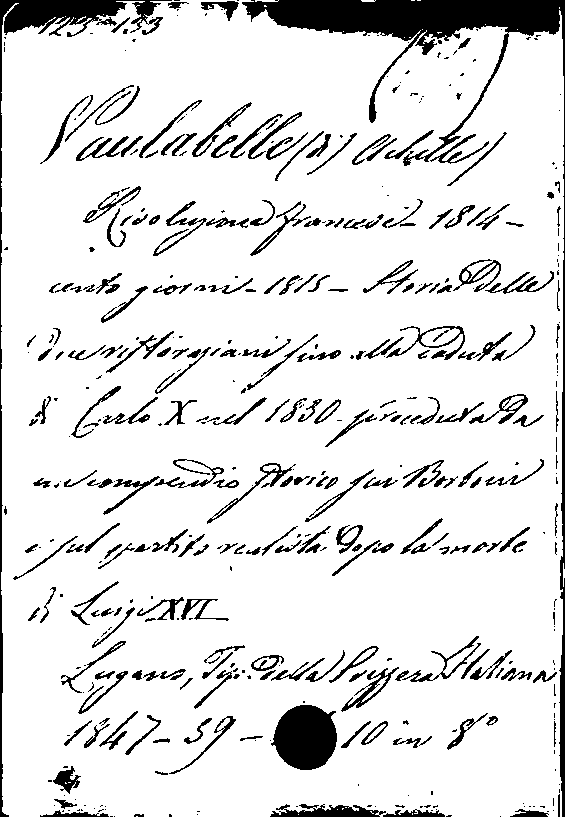 123-133
Vaulabelle (di) Achille)
Rivoluzione francese - 1814 -
cento giorni - 1815 - Storia Delle
due ristorazioni fino alla caduta
di Carlo X nel 1830. preceduta da
un compendio storico sui Borboni
e sul partito realista dopo la morte
di Luigi XVI
Lugano, Tip. della Svizzera Italiana
1847-59 - 10 in 8°